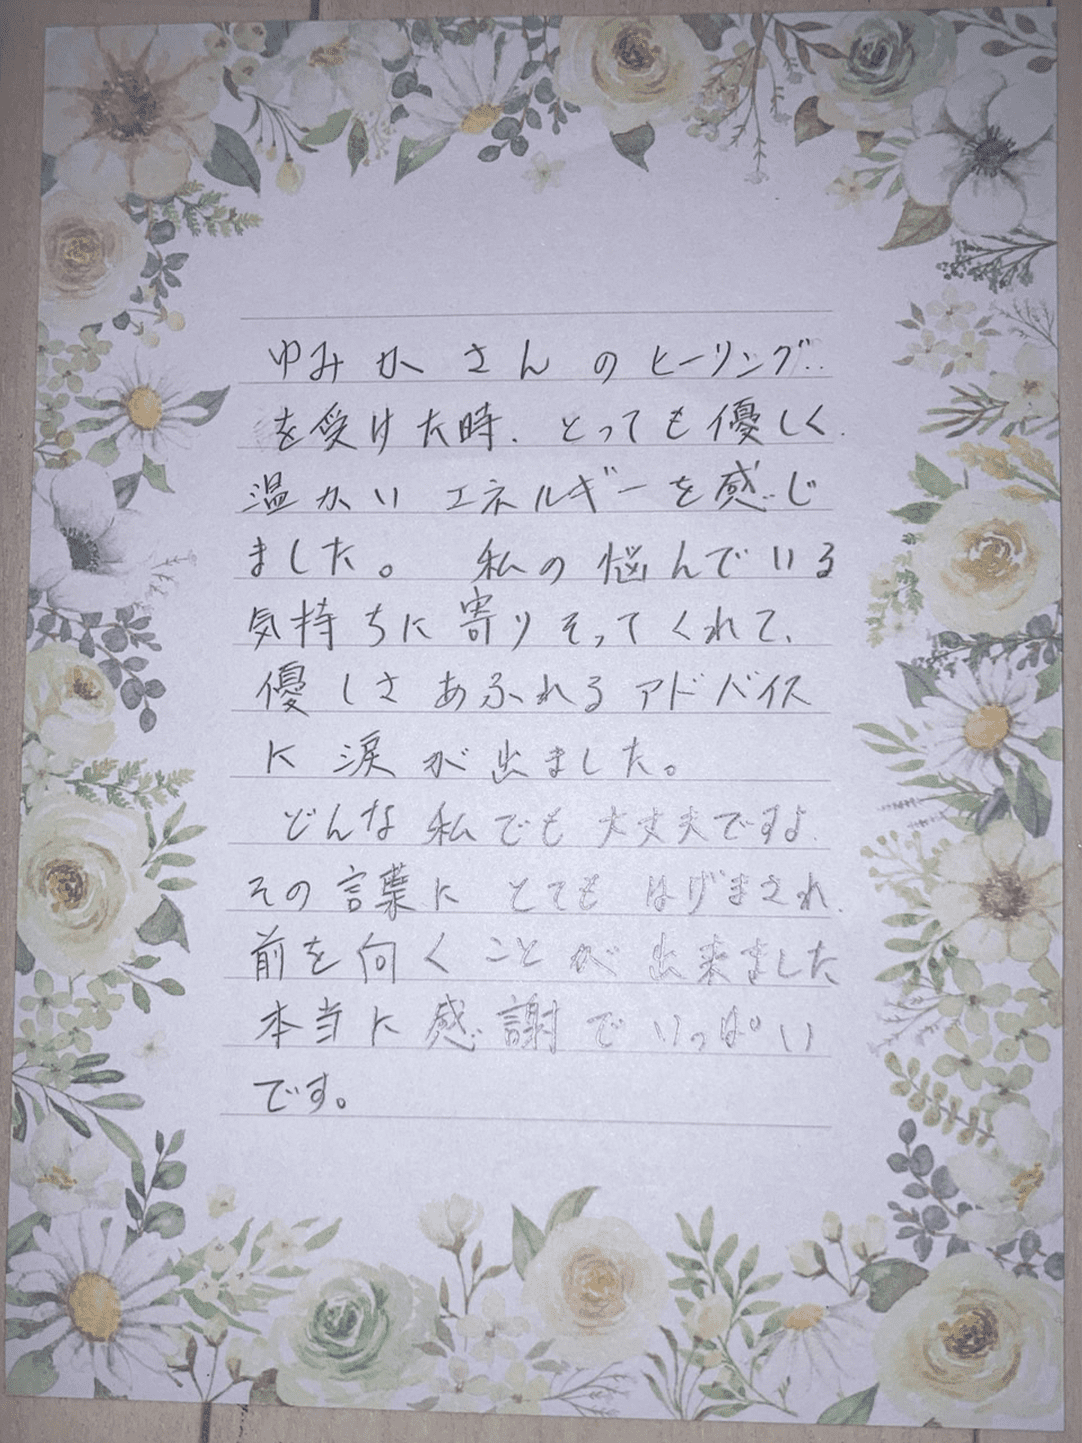 ゆみかさんのヒーリング
を受けた時、とっても優しく
温かいエネルギーを感じ
ました。私の悩んでいる
気持ちに寄りそってくれて、
優しさあふれるアドバイス
に涙が出ました。
どんな私でも大丈夫ですよ
その言葉にとてもはげまされ、
前を向くことが出来ました
本当に感謝でいっぱい
です。